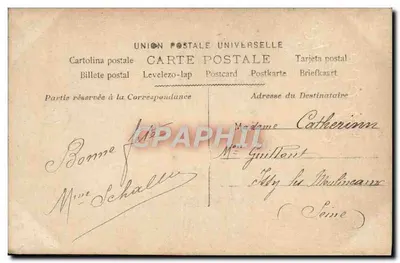 UNION POSTALE UNIVERSELLE
Cartolina postale CARTE POSTALE Tarjeta postal
Billete postal Levelezo-lap Postcard Postkarte Briefkaart
Partie réservée à la Correspondance
Adresse du Destinataire
Bonne fête
Mme Schaller
Madame Catherinn
Mon Guillout
Issy les Moulineaux
(Seine)
CPAPHIL